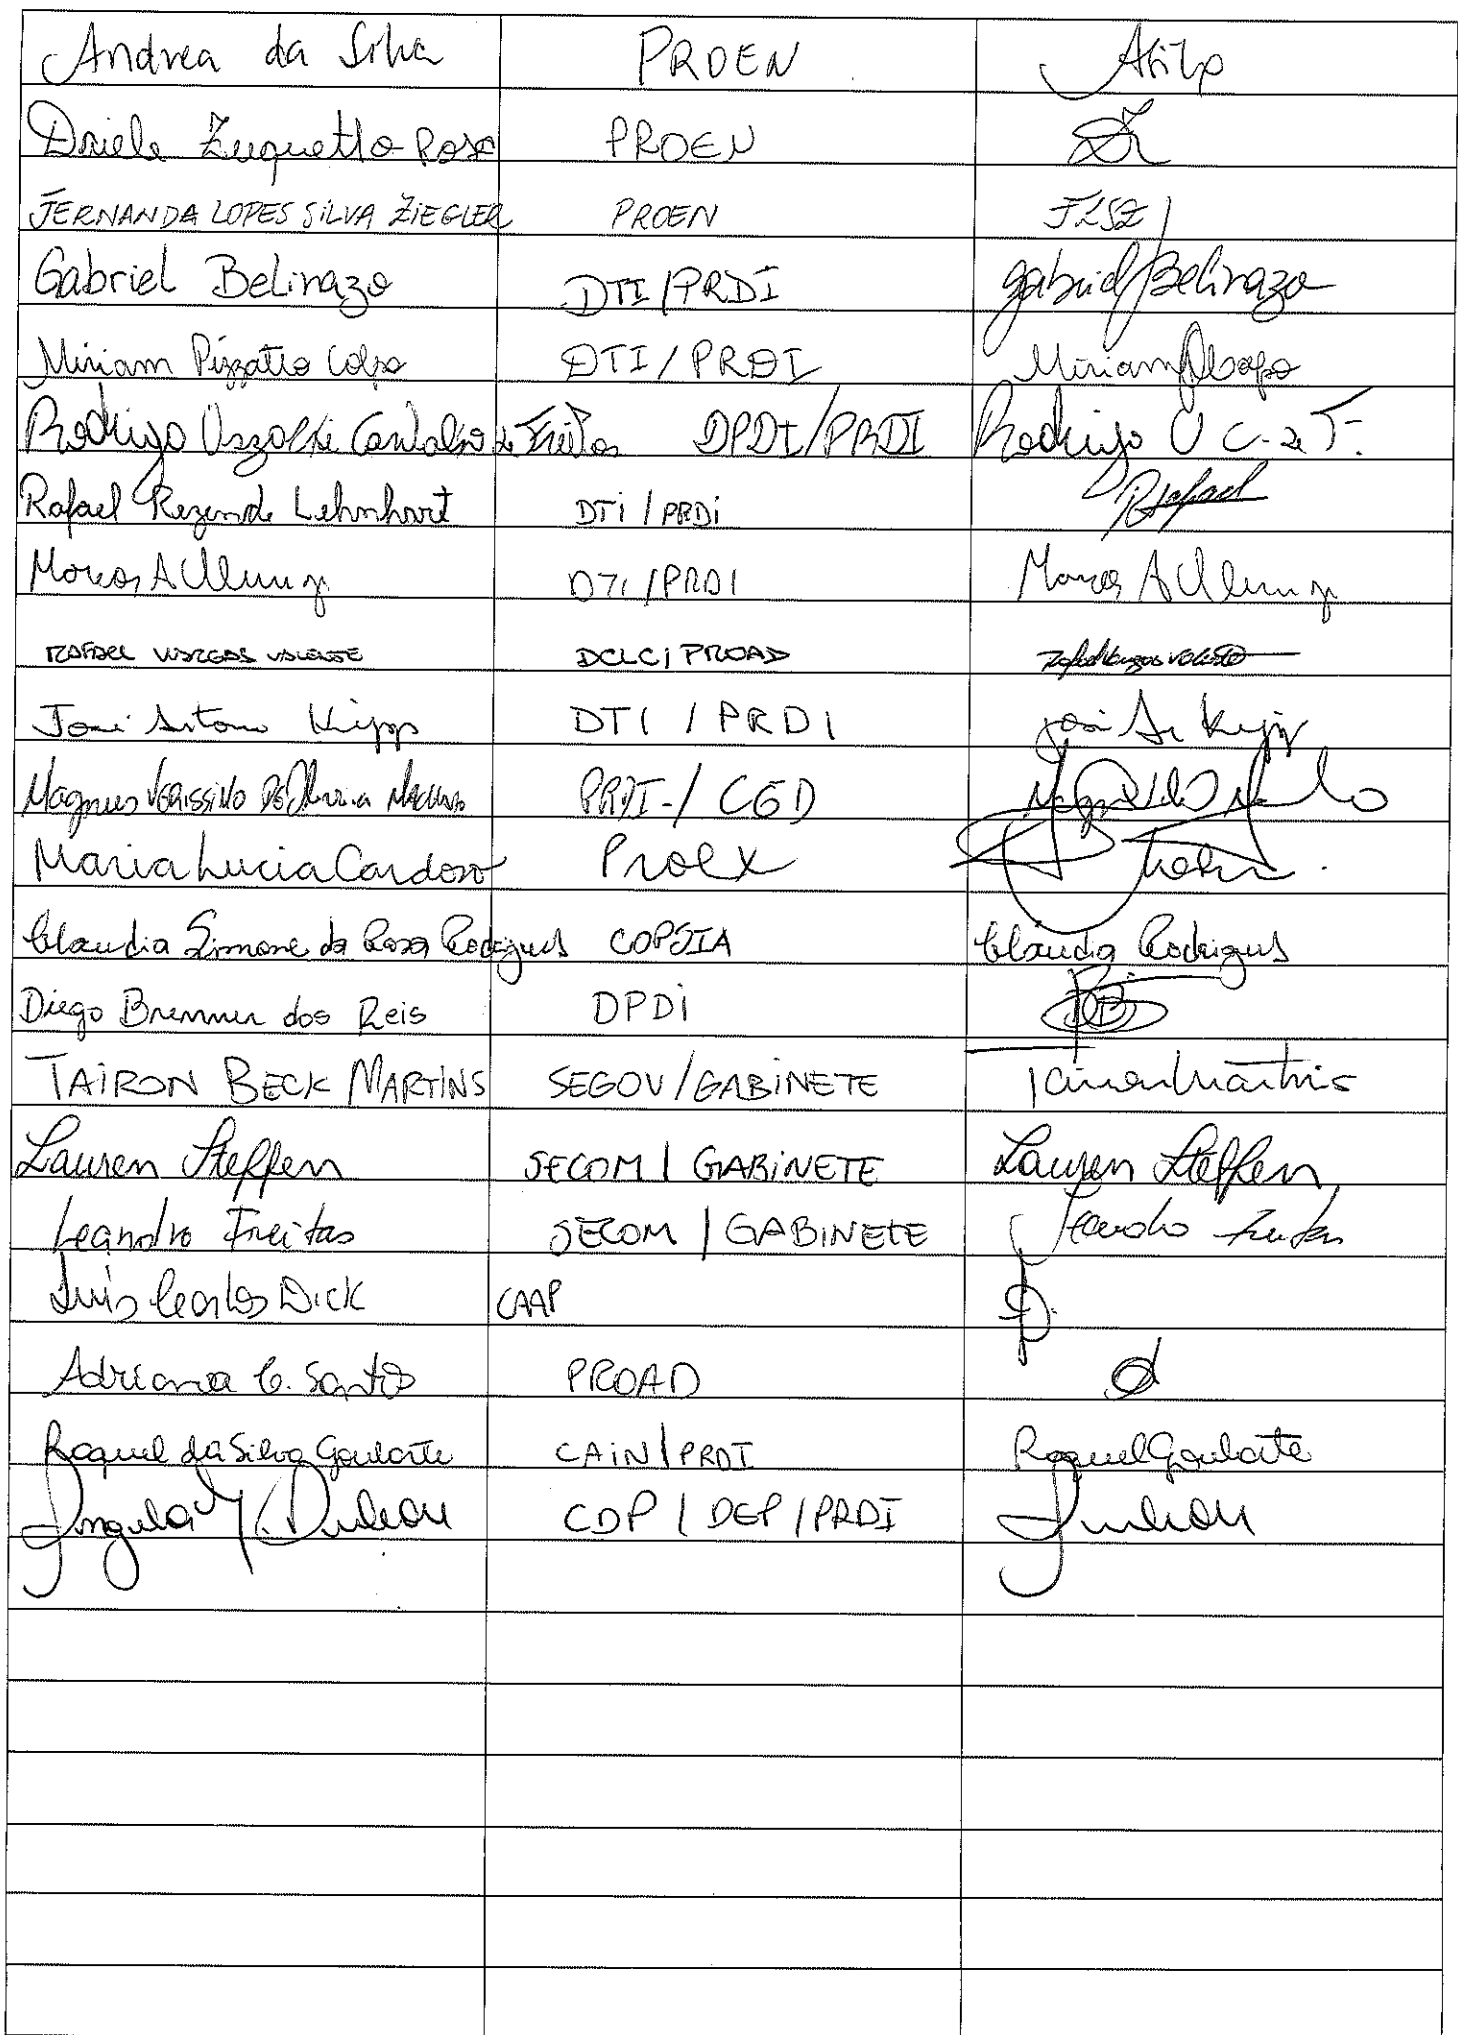 Andrea da Silva PROEN ASilva
Driele Zuquetto Rosa PROEN
FERNANDA LOPES SILVA ZIEGLER PROEN FLSZ
Gabriel Belinazo DTI/PRDI Gabriel Belinazo
Miriam Pizzatto Colpo DTI/PRDI Miriam Colpo
Rodrigo Carvalho de Freitas DPDI/PRDI Rodrigo U C. de F.
Rafael Rezende Lehnhart DTi/PRDi Rafael
Marcos A DTI/PRDI Marcos A
RAFAEL VARGAS VALENTE DCLC/PROAD Rafael Vargas Valente
José Antonio Kipp DTI / PRDI José An Kipp
Magnus VERISSIMO De Oliveira PRDI-/CGD
Maria Lucia Cardoso Proex
Claudia Simone da Rosa Rodrigues COPSIA Cláudia Rodrigues
Diego Brenner dos Reis DPDi
TAIRON BECK MARTINS SEGOV/GABINETE Tairon Martins
Lauren Steffen SECOM / GABINETE Lauren Steffen
Leandro Freitas SECOM / GABINETE Leandro Freitas
Luis Carlos Dick CAAP
Adriana C. Santos PROAD
Raquel da Silva Goularte CAIN/PRDI Raquel Goularte
CDP / DEP / PRDI